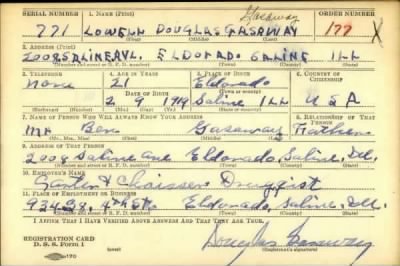 SERIAL NUMBER 1. NAME (Print) ORDER NUMBER
Gasaway
771 LOWELL DOUGLAS GASAWAY 177 X
(First) (Middle) (Last)
2. ADDRESS (Print)
2008 SALINE AVE. ELDORADO SALINE ILL
(Number and street or R. F. D. number) (Town) (County) (State)
3. TELEPHONE 4. AGE IN YEARS 5. PLACE OF BIRTH 6. COUNTRY OF CITIZENSHIP
None 21 Eldorado
DATE OF BIRTH (Town or county)
2 9 1919 Saline Ill U S A
(Exchange) (Number) (Mo.) (Day) (Yr.) (State or country)
7. NAME OF PERSON WHO WILL ALWAYS KNOW YOUR ADDRESS 8. RELATIONSHIP OF THAT PERSON
Mr Ben Gasaway Father
(Mr., Mrs., Miss) (First) (Middle) (Last)
9. ADDRESS OF THAT PERSON
2008 Saline Ave Eldorado, Saline, Ill.
(Number and street or R. F. D. number) (Town) (County) (State)
10. EMPLOYER'S NAME
Druggist
11. PLACE OF EMPLOYMENT OR BUSINESS
4th St. Eldorado, Saline, Ill.
(Number and street or R. F. D. number) (Town) (County) (State)
I AFFIRM THAT I HAVE VERIFIED ABOVE ANSWERS AND THAT THEY ARE TRUE.
REGISTRATION CARD
D. S. S. Form 1 Douglas Gasaway
(Registrant's signature)